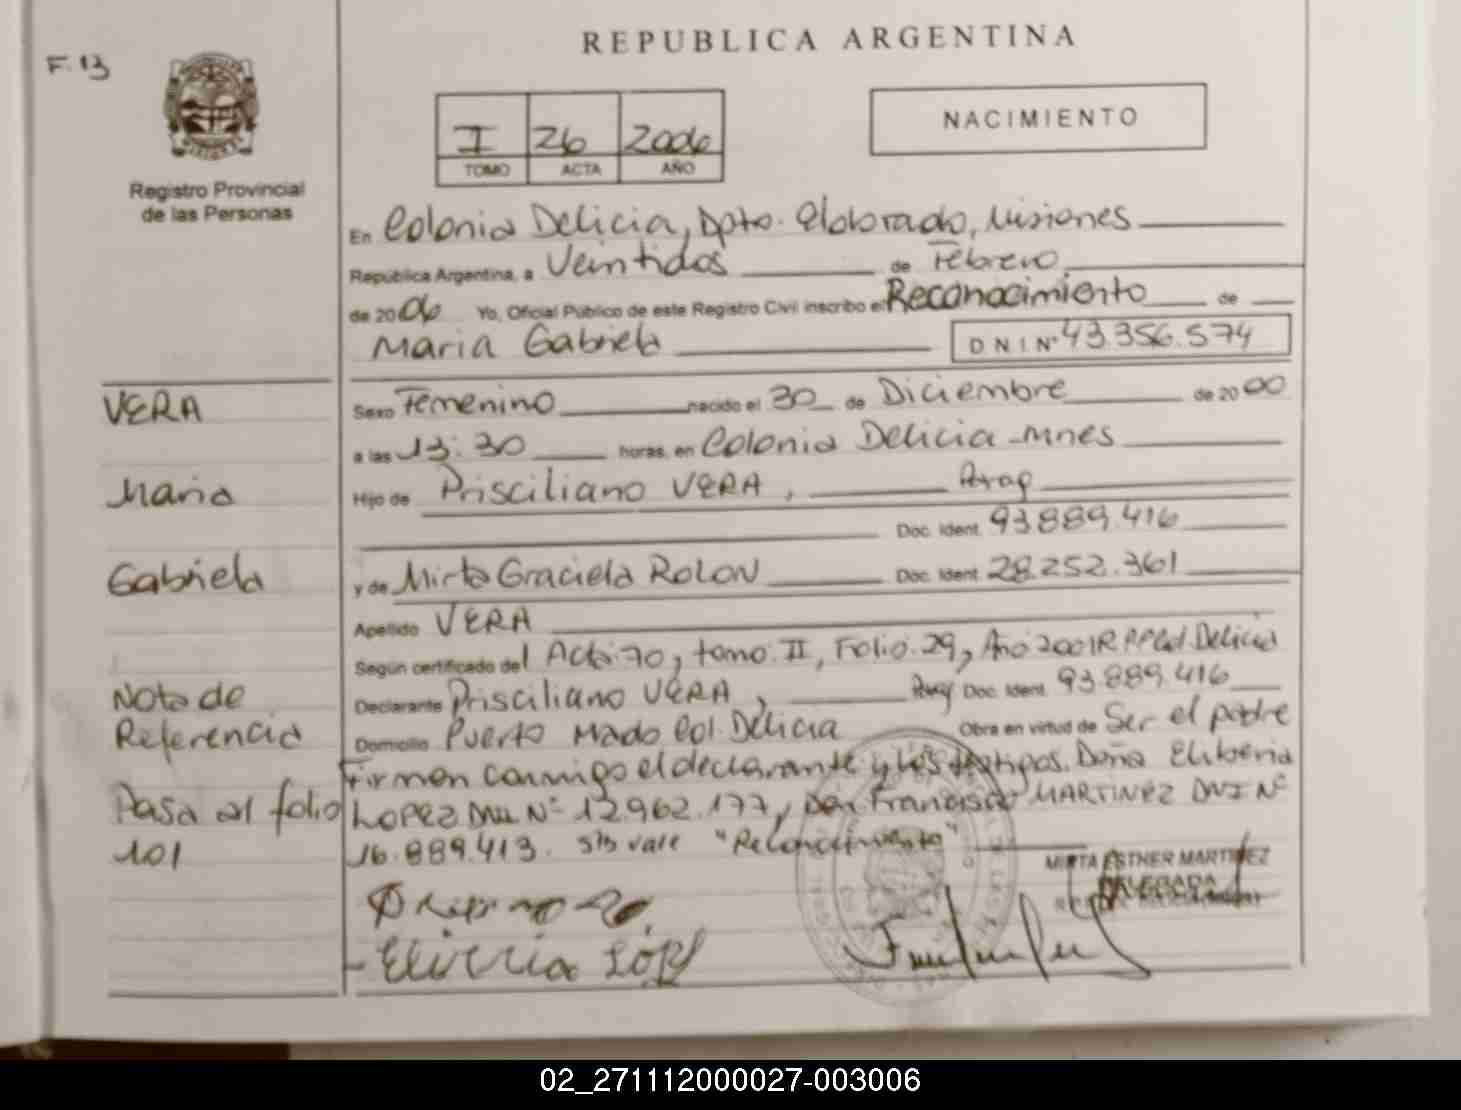 F. 13
REPUBLICA ARGENTINA
I 26 2006
TOMO ACTA AÑO
NACIMIENTO
Registro Provincial
de las Personas
En Colonia Delicia, Dpto. Eldorado, Misiones
República Argentina, a Veintidos de Febrero
de 2006 Yo, Oficial Público de este Registro Civil inscribo el Reconocimiento de
Maria Gabriela D N I Nº 43.356.574
VERA
Maria
Gabriela
Nota de
Referencia
Pasa al folio
101
Sexo Femenino nacido el 30 de Diciembre de 2000
a las 13:30 horas, en Colonia Delicia - Mnes
Hijo de Prisciliano VERA, Arag
Doc. Ident. 93889.416
y de Mirta Graciela ROLON Doc. Ident. 28.252.361
Apellido VERA
Según certificado del Acta 70, tomo II, Folio 29, Año 2001 R.P.P. Col. Delicia
Declarante Prisciliano VERA, Doc. Ident. 93889.416
Domicilio Puerto Mado Col. Delicia Obra en virtud de Ser el padre
Firman conmigo el declarante y los testigos. Doña Eliberia
LOPEZ DNI Nº 12.962.177, Don Francisco MARTINEZ DNI Nº
16.889.413. s/b vale "Reconocimiento"
MIRTA ESTHER MARTINEZ
DELEGADA
02_271112000027-003006